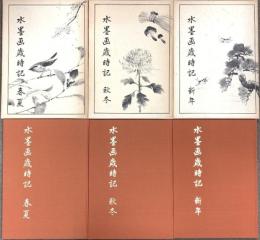 水墨画歳時記 春夏
水墨画歳時記 秋冬
水墨画歳時記 新年
水墨画歳時記 春夏
水墨画歳時記 秋冬
水墨画歳時記 新年